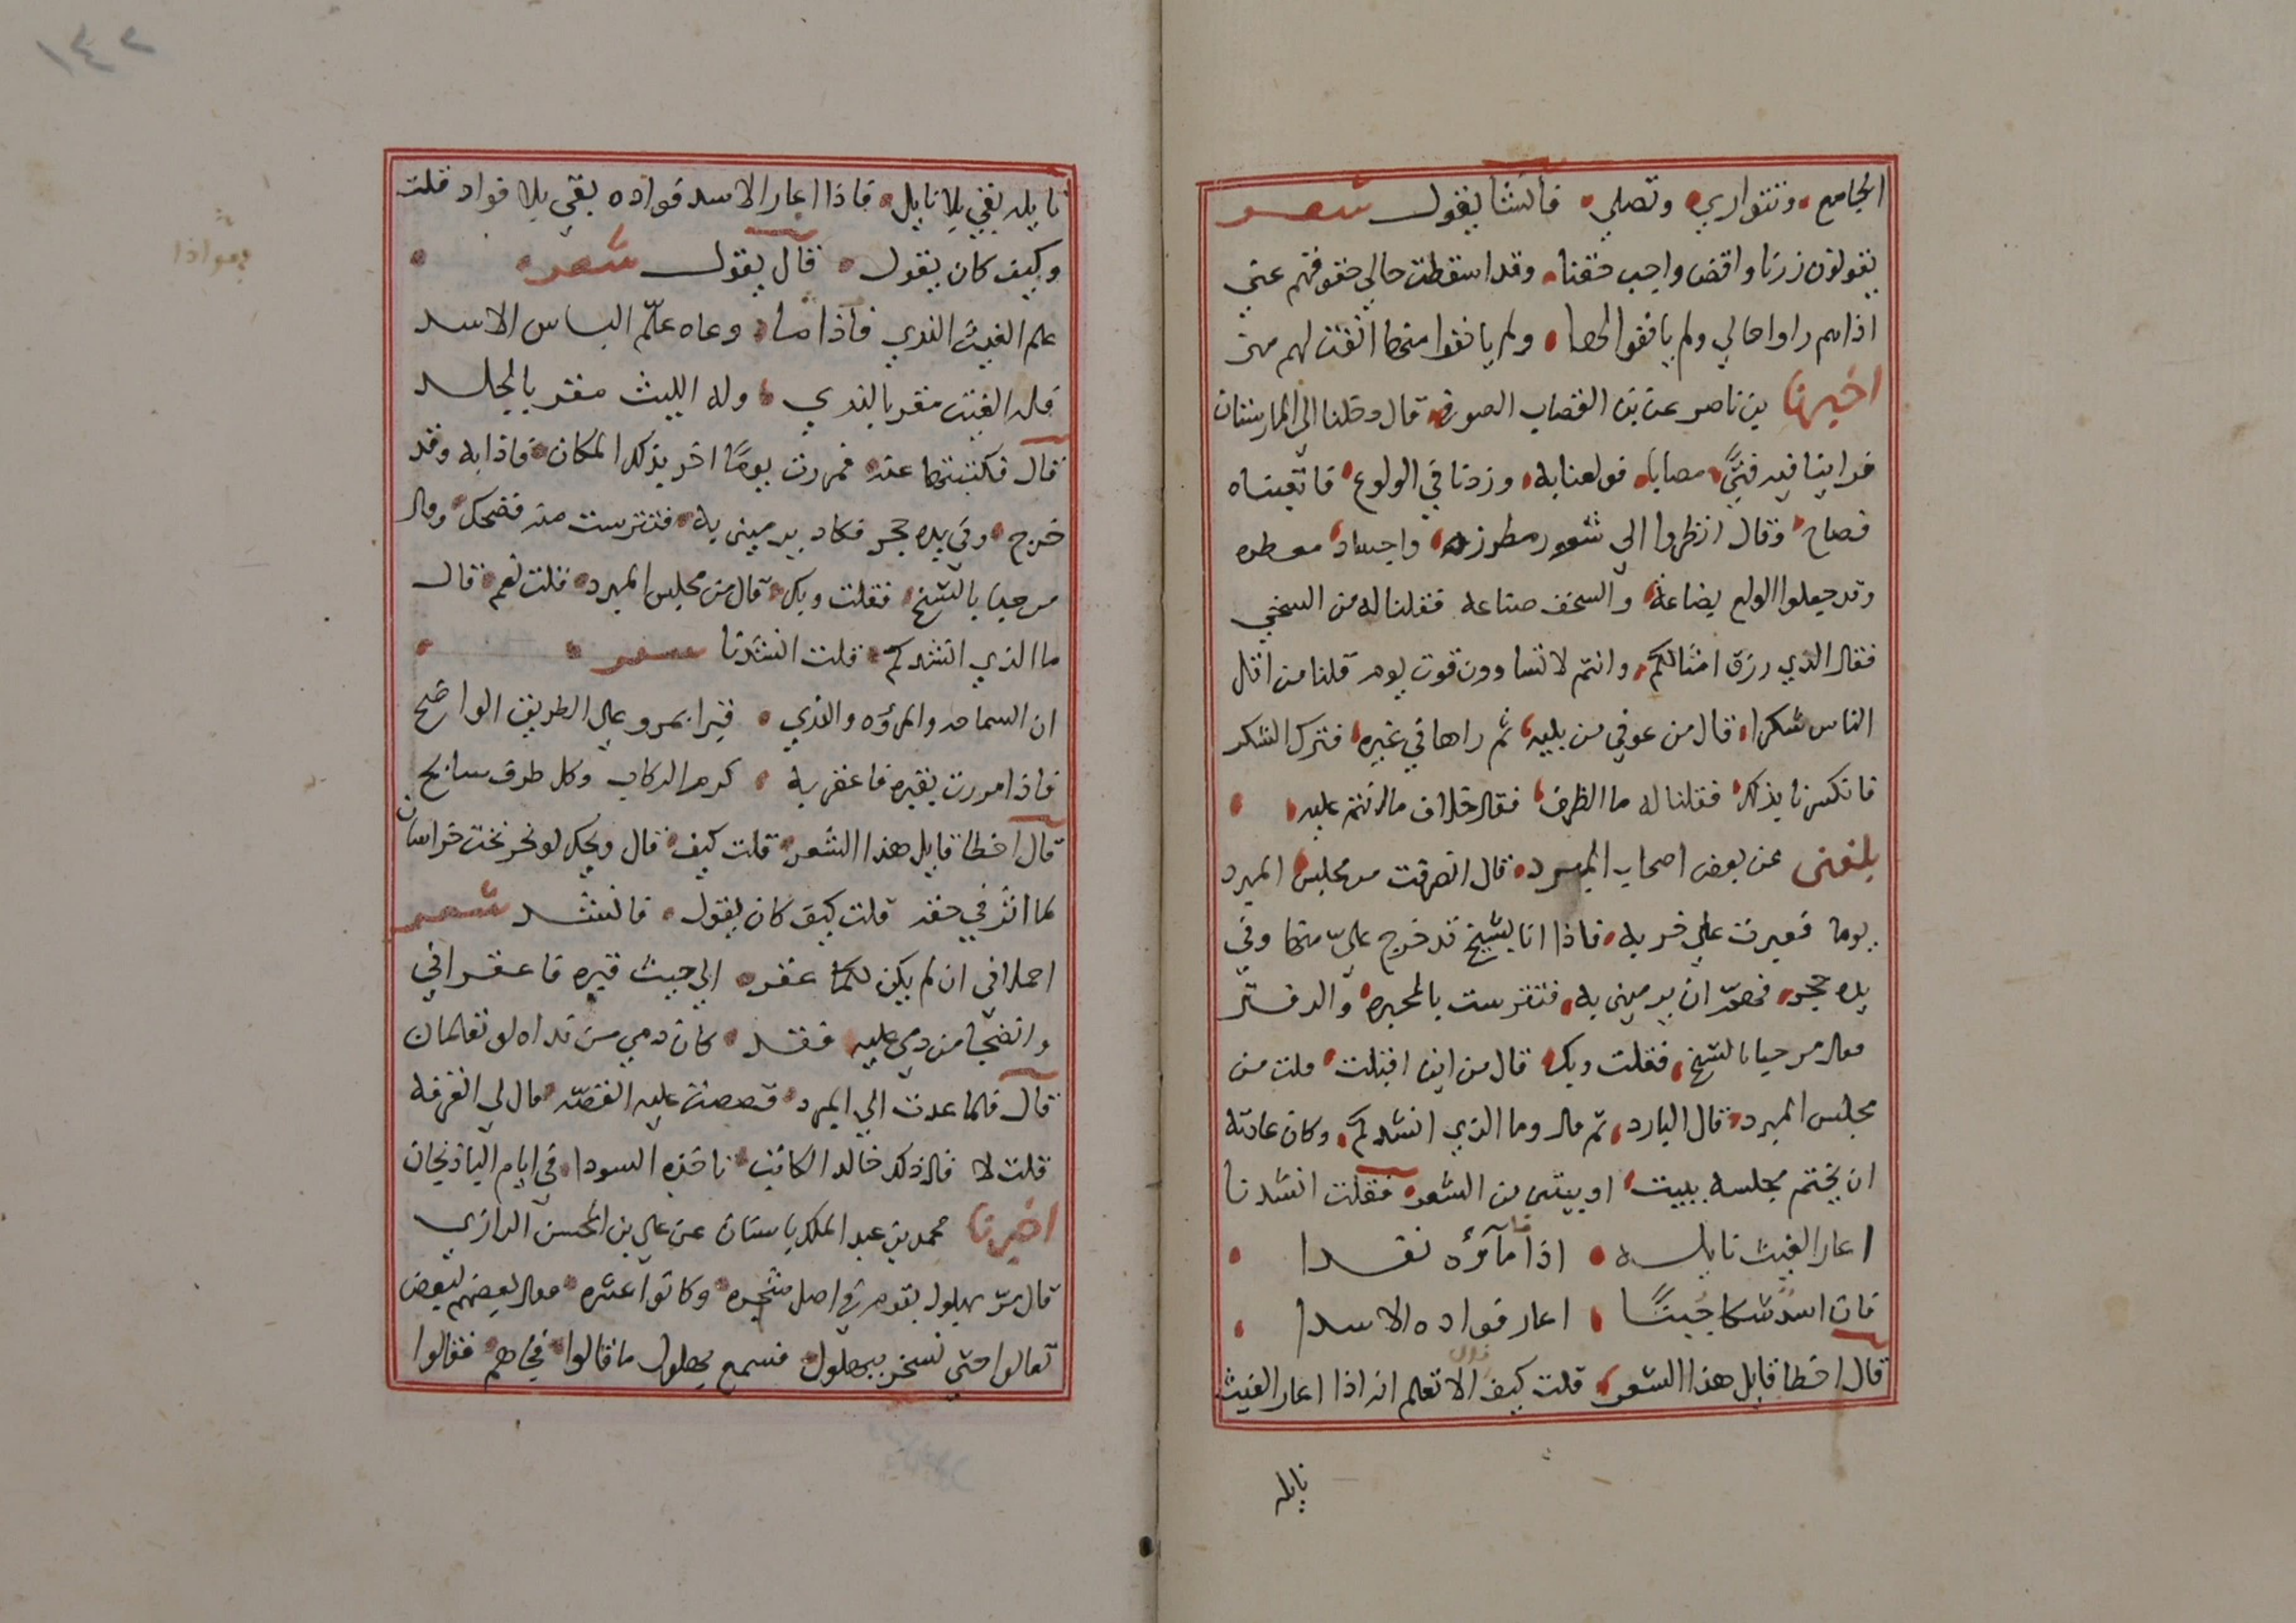 الجامع وتتواري وتصلي فأنشأ يقول شعر
يقولون زرنا واقض واجب حقنا وقد اسقطت حالي حقوقهم عني
اذا هم راوا حالي ولم يانفوا لها ولم يانفوا منها انفت لهم مني
اخبرنا بن ناصر عن بن القصاب الصوفي قال دخلنا الي المارستان
فراينا فيه فتيً مصابا فولعنا به وزدنا في الولوع فاتعبناه
فصاح وقال انظروا الي شعور مطرزه واجساد معطره
وقد جعلوا الولع بضاعة والسخف صناعه فقلنا له من السخي
فقال الذي رزق امثالكم وانتم لا تساوون قوت يوم قلنا من اقل
الناس شكرا قال من عوفي من بليه ثم راها في غيره فترك الشكر
فانكسرنا بذلك فقلنا له ما الظرف فقال خلاف ما انتم عليه
بلغني عن بعض اصحاب المبرد قال انصرفت من مجلس المبرد
يوما فعبرت علي خربه فاذا انا بشيخ قد خرج عليّ منها وفي
يده حجر فهمّ ان يرميني به فتترست بالمحبره والدفتر
فقال مرحبا بالشيخ فقلت وبك قال من اين اقبلت قلت من
مجلس المبرد قال البارد ثم قال وما الذي انشدكم وكان عادته
ان يختم مجلسه ببيت او بيتين من الشعر فقلت انشدنا
اعار الغيث نايله اذا ما مآؤه نفدا
فان اسدٌ شكا جُبنًا اعار فواده الاسدا
قال اخطا قايل هذا الشعر قلت كيف الا تعلم انه اذا اعار الغيث
نايله
١٤٢
نايله بقي بلا نايل فاذا اعار الاسد فواده بقي بلا فواد قلت
وكيف كان يقول قال يقول شعر
علم الغيث الندي فاذا ما وعاه علّم الباس الاسد
فله الغيث مقر بالندي وله الليث مقر بالجلد
قال فكتبتها عنه فمررت يومًا اخر بذلك المكان فاذا به وقد
خرج وفي يده حجر فكاد يرميني به فتترست منه فضحك وقال
مرحبا بالشيخ فقلت وبك قال من مجلس المبرد فقلت نعم قال
ما الذي انشدكم قلت انشدنا شعر
ان السماحه والمروه والندي قبرا بمرو علي الطريق الواضح
فاذا مررت بقبره فاعقر به كرم الركاب وكل طرف سابح
قال اخطا قايل هذا الشعر قلت كيف قال ويحك لو نحر نخت خراسان
لما اثر في حقه قلت كيف كان يقول فانشد شعر
احملاني ان لم يكن لكما عقر الي جنب قبره فاعقراني
وانضحا من دمي عليه فقد كان دمي من نداه لو تعلمان
قال فلما عدت الي المبرد قصصت عليه القصّه قال لي اتعرفه
قلت لا قال ذلك خالد الكاتب تاخذه السودا في ايام الباذنجان
اخبرنا محمد بن عبد الملك باسناد عن علي بن الحسن الرازي
قال مرّ بهلول بقوم في اصل شجره وكانوا عشره فقال بعضهم لبعض
تعالوا حتي نسخر ببهلول فسمع بهلول ما قالوا فجاهم فقالوا